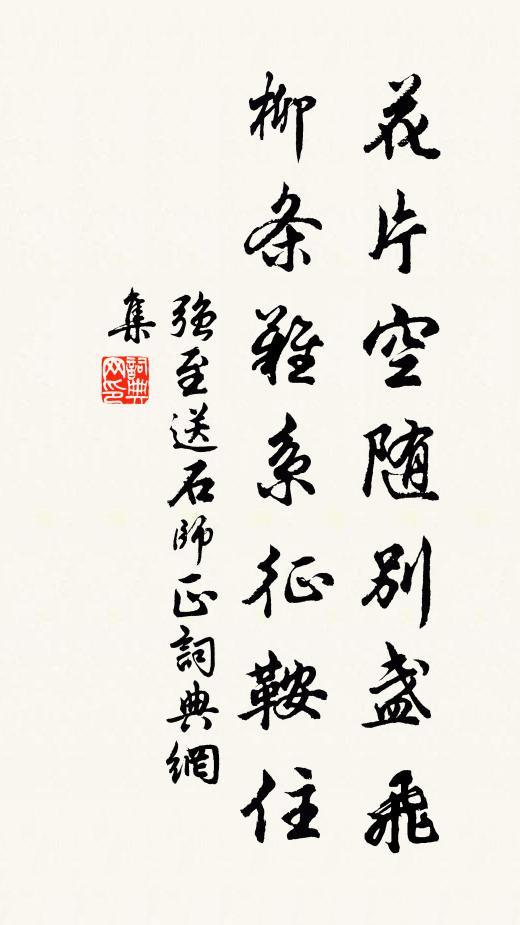 花片空随别盏飛
柳条難系征鞍住
强至送石師正詞典網
集
詞典网印